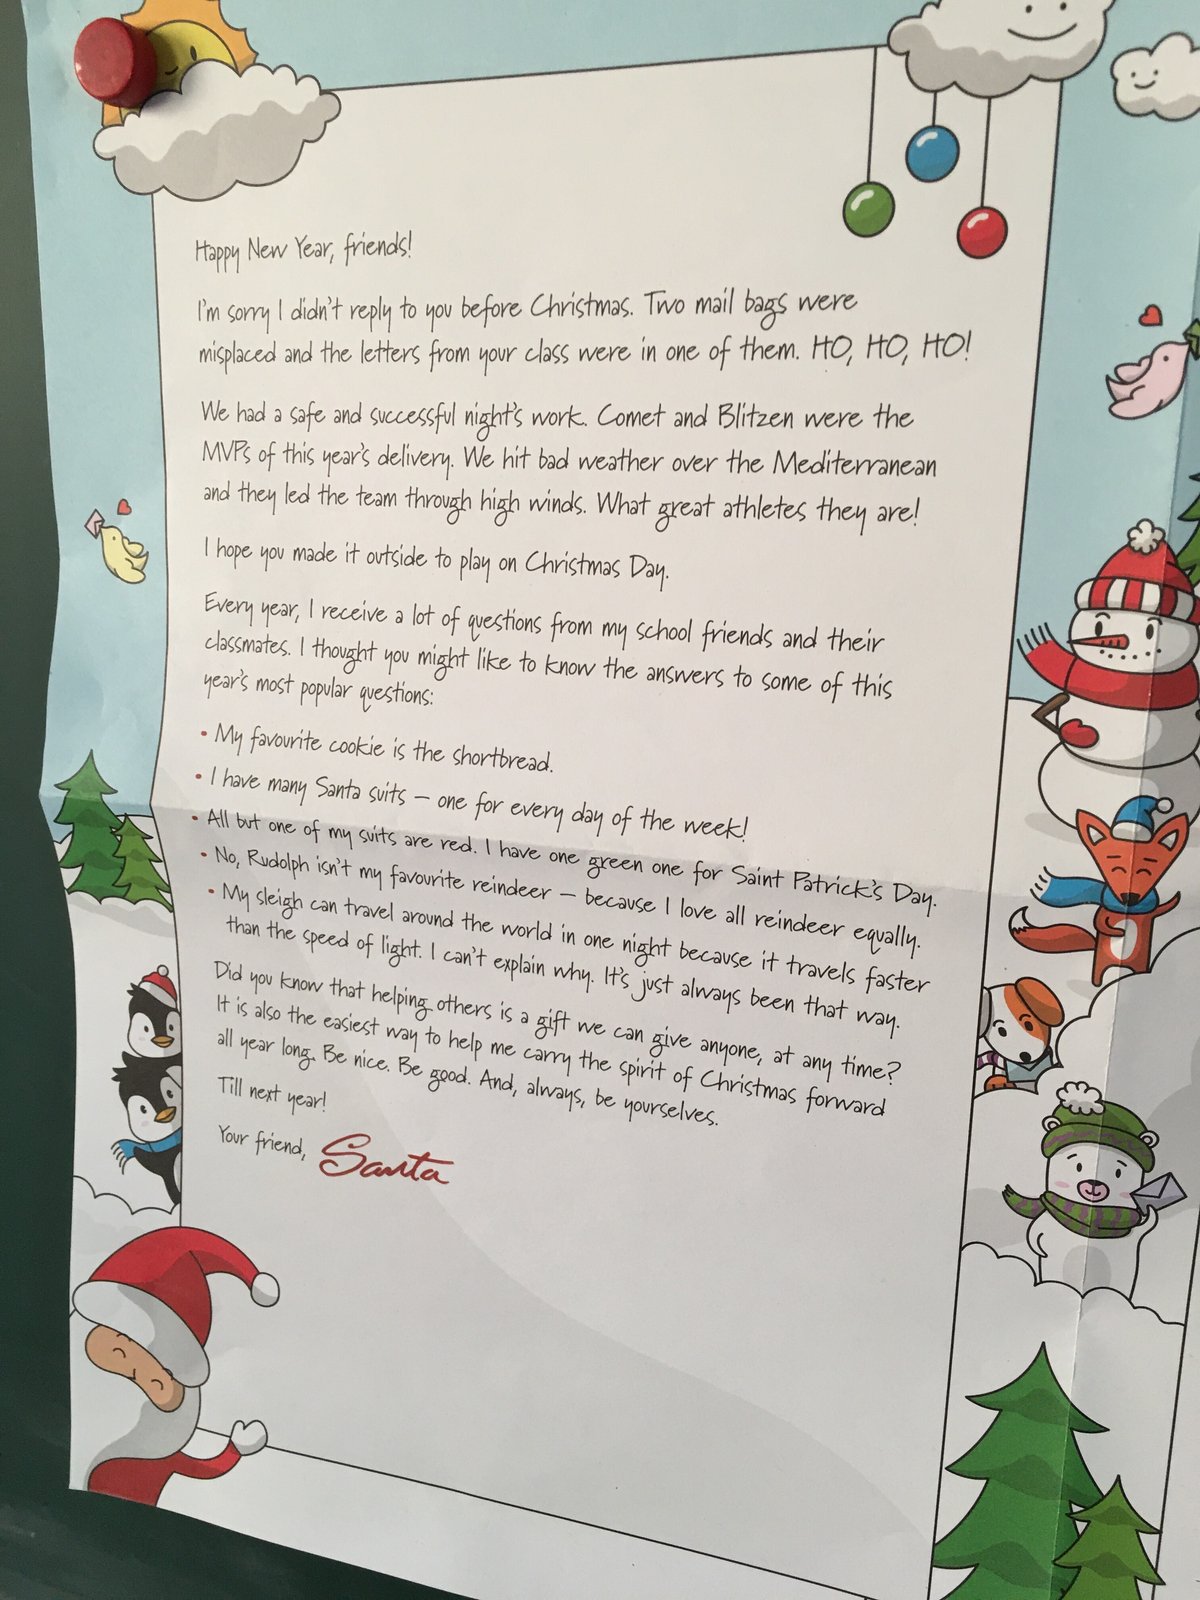 Happy New Year, friends!
I'm sorry I didn't reply to you before Christmas. Two mail bags were
misplaced and the letters from your class were in one of them. HO, HO, HO!
We had a safe and successful night's work. Comet and Blitzen were the
MVPs of this year's delivery. We hit bad weather over the Mediterranean
and they led the team through high winds. What great athletes they are!
I hope you made it outside to play on Christmas Day.
Every year, I receive a lot of questions from my school friends and their
classmates. I thought you might like to know the answers to some of this
year's most popular questions:
• My favourite cookie is the shortbread.
• I have many Santa suits – one for every day of the week!
• All but one of my suits are red. I have one green one for Saint Patrick's Day.
• No, Rudolph isn't my favourite reindeer – because I love all reindeer equally.
• My sleigh can travel around the world in one night because it travels faster
than the speed of light. I can't explain why. It's just always been that way.
Did you know that helping others is a gift we can give anyone, at any time?
It is also the easiest way to help me carry the spirit of Christmas forward
all year long. Be nice. Be good. And, always, be yourselves.
Till next year!
Your friend, Santa